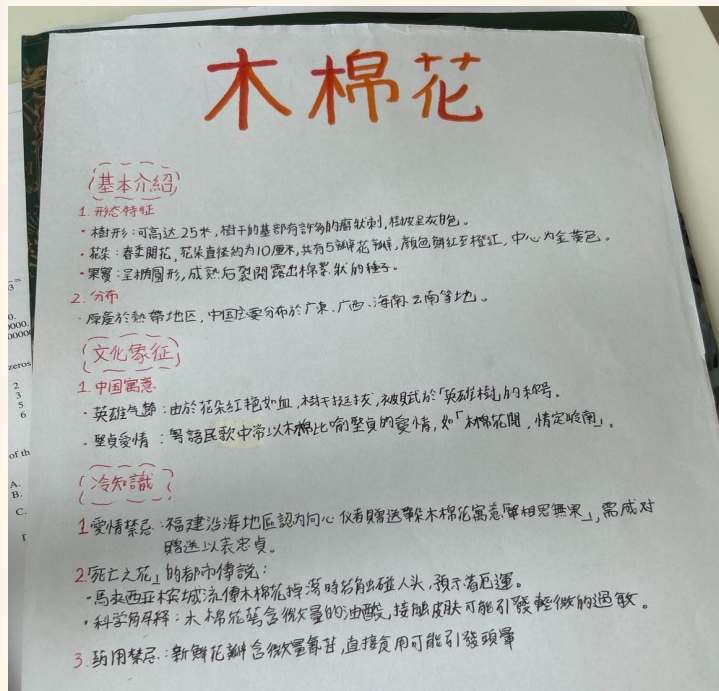 木棉花
基本介紹
1. 形态特征
· 樹形：可高达25米，樹干的基部有許多的瘤狀刺，树皮呈灰白色。
· 花朵：春季開花，花朵直径約为10厘米，共有5瓣花瓣，顏色鮮紅至橙红，中心为金黄色。
· 果實：呈椭圓形，成熟后裂開露出棉絮狀的種子。
2. 分布
· 原產於熱帶地区，中国主要分布於广東、广西、海南、云南等地。
文化象征
1. 中国寓意
· 英雄气節：由於花朵紅艳如血，树干挺拔，被賦於「英雄樹」的称号。
· 堅貞愛情：粤語民歌中常以木棉比喻堅貞的愛情，如「木棉花開，情定嶺南」。
冷知識
1 愛情禁忌：福建沿海地區認为向心仪者贈送單朵木棉花寓意「單相思無果」，需成对
贈送以表忠貞。
2「死亡之花」的都市傳説：
· 馬來西亚槟城流傳木棉花掉落時若触碰人头，預示着厄運。
· 科学解释：木棉花萼含微量的油酸，接触皮肤可能引發輕微的過敏。
3. 药用禁忌：新鮮花瓣含微量氰苷，直接食用可能引發頭暈
zeros
2
3
5
6
of th
A.
B.
C.